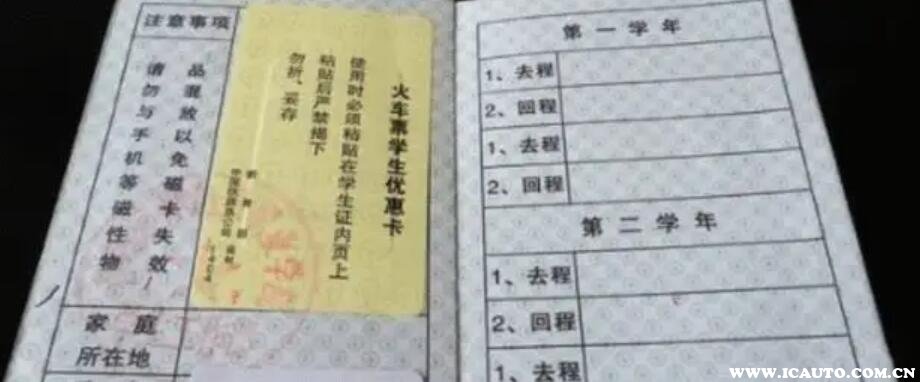 注意事项
请勿与手机等磁性物
品混放以免磁卡失效
火车票学生优惠卡
使用时必须粘贴在学生证内页上
粘贴后严禁揭下
勿折、妥存
中国铁路总公司
家庭
所在地
第一学年
1、去程
2、回程
1、去程
2、回程
第二学年
1、去程
2、回程
1、去程
WWW.ICAUTO.COM.CN